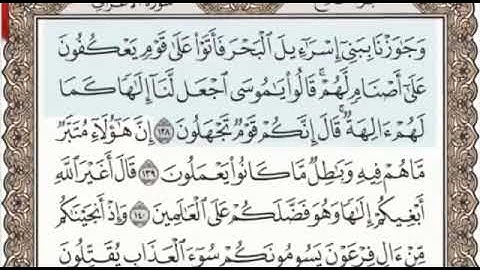 سورة الأعراف
وَجَٰوَزْنَا بِبَنِىٓ إِسْرَٰٓءِيلَ ٱلْبَحْرَ فَأَتَوْا۟ عَلَىٰ قَوْمٍ يَعْكُفُونَ
عَلَىٰٓ أَصْنَامٍ لَّهُمْ ۚ قَالُوا۟ يَٰمُوسَى ٱجْعَل لَّنَآ إِلَٰهًا كَمَا
لَهُمْ ءَالِهَةٌ ۚ قَالَ إِنَّكُمْ قَوْمٌ تَجْهَلُونَ ١٣٨ إِنَّ هَٰٓؤُلَآءِ مُتَبَّرٌ
مَّا هُمْ فِيهِ وَبَٰطِلٌ مَّا كَانُوا۟ يَعْمَلُونَ ١٣٩ قَالَ أَغَيْرَ ٱللَّهِ
أَبْغِيكُمْ إِلَٰهًا وَهُوَ فَضَّلَكُمْ عَلَى ٱلْعَٰلَمِينَ ١٤٠ وَإِذْ أَنجَيْنَٰكُم
مِّنْ ءَالِ فِرْعَوْنَ يَسُومُونَكُمْ سُوٓءَ ٱلْعَذَابِ يُقَتِّلُونَ